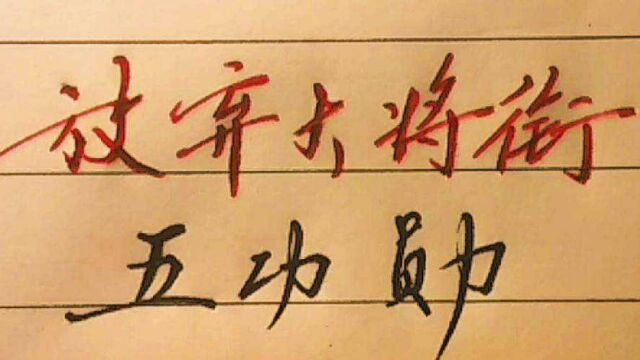 放弃大将衔
五功勋